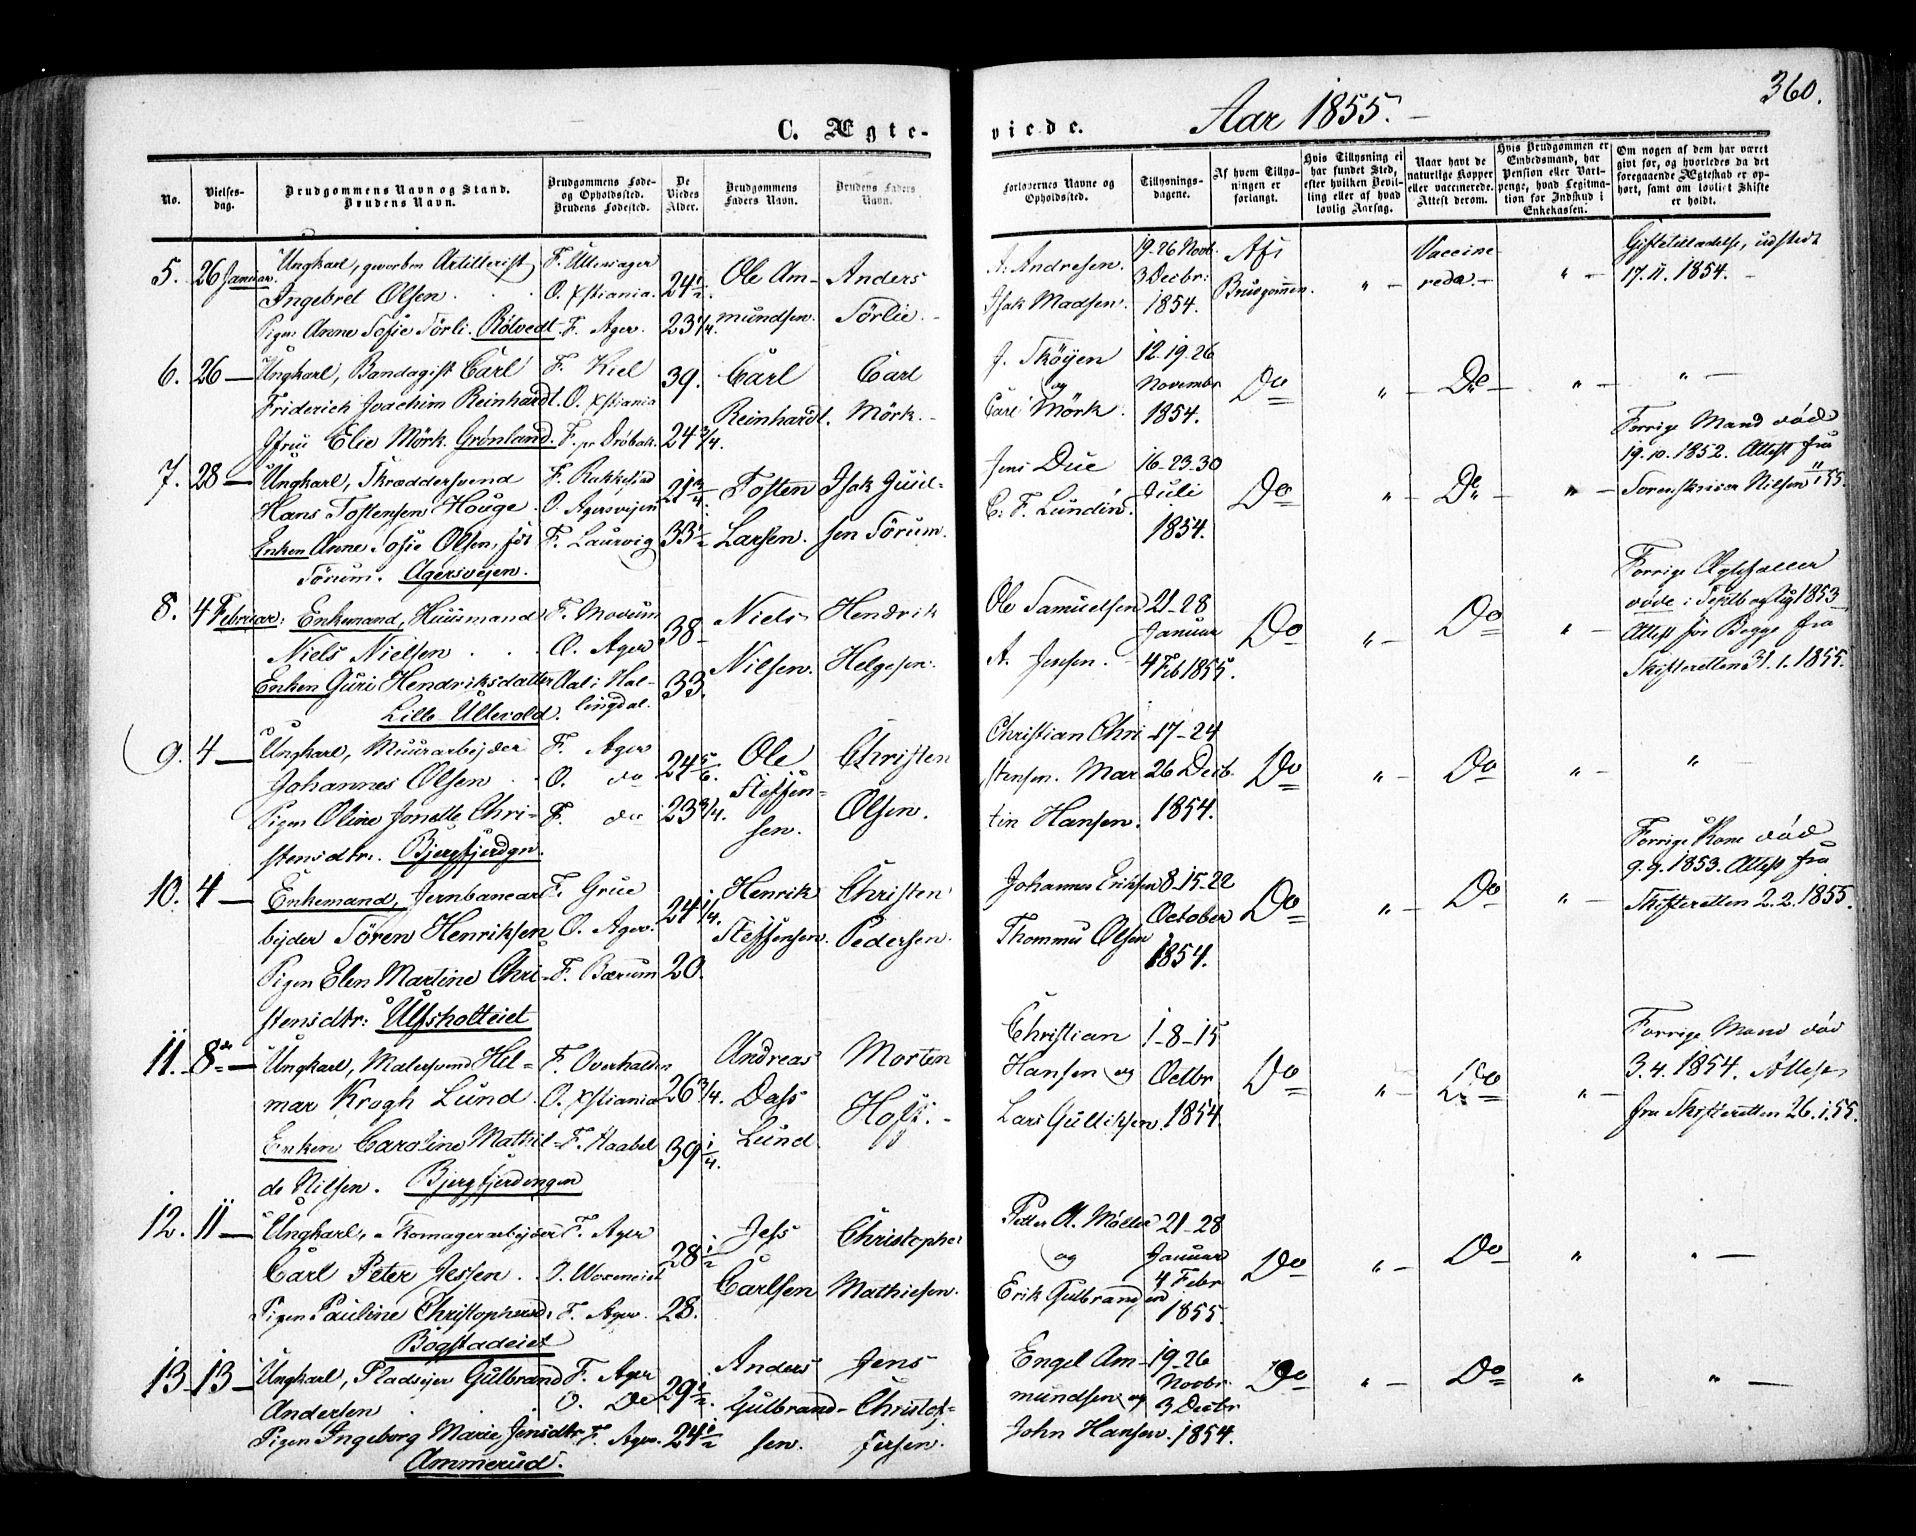 360.
C. Ægte-
viede.
Aar 1855.
No.
Vielses-
dag.
Brudgommens Navn og Stand.
Brudens Navn.
Brudgommens Føde-
og Opholdssted.
Brudens Fødested.
De
Viedes
Alder.
Brudgommens
Faders Navn.
Brudens Faders
Navn.
Forlovernes Navne og
Opholdssted.
Tillysnings-
dagene.
Af hvem Tillys-
ningen er
forlangt.
Hvis Tillysning ei
har fundet Sted,
efter hvilken Bevil-
ling eller af hvad
lovlig Aarsag.
Naar havt de
naturlige Kopper
eller vaccinerede.
Attest derom.
Hvis Brudgommen er
Embedsmand, har
Pension eller Vart-
penge, hvad Legitima-
tion for Indskud i
Enkekassen.
Om nogen af dem har været
gift før, og hvorledes da det
foregaaende Ægteskab er op-
hørt, samt om lovligt Skifte
er holdt.
5. 26 Januar. Ungkarl, gevorben Artillerist F. Ullensager 24½ Ole Am- Anders
Ingebret Olsen. O. Xstiania.
Pigen Anne Sofie Törli. Rölvedt. F. Ager. 23¼. mundsen. Törlie.
A. Andresen. 19-26 Novb. Afs Vaccine- Giftetilladelse, udstedt
Isak Madsen. 3 Decbr: 1854. Brudgommen. " reda. " 17.11.1854.
6. 26 Ungkarl, Bandagist Carl F. Kiel 39. Carl Carl
Friderich Joachim Reinhardt. O. Xstiania Reinhardt. Mörk.
Jfru Elie Mörk. Grønland. F. pr Dröbak. 24¾.
J. Sköyen 12-19-26
og Novembr Do " Do " "
Carl Mörk. 1854.
7. 28 Ungkarl, Skræddersvend F. Rakkestad 21¾ Tosten Isak Guul-
Hans Tostensen Houge. O. Agersvejen
Enken Anne Sofie Olsen, föd F. Laurvig 33½ Larsen. sen Törum.
Törum. Agersvejen.
Jens Due 16-23-30 Forrige Mand död
C. F. Lundin. Juli Do " Do " 19.10.1852. Attest fra
1854. Sorenskriver Nilsen 55.
8. 4 Februar: Enkemand, Huusmand F. Modum 38 Niels Hendrik
Niels Nielsen O. Ager
Enken Guri Hendriksdatter Aal i Hal- 33. Nilsen. Helgesen.
Lille Ullevold. lingdal.
Ole Samuelsen 21-28 Forrige Ægtefæller
Januar Do " Do " döde i Septb og Aug 1853
A. Jensen. 4 Feb 1855. Attest för Begge fra
Skifteretten 31.1.1855.
9. 4 Ungkarl, Muurarbejder F. Ager 24⅚. Ole Christen
Johannes Olsen O. do Steffen-
Pigen Oline Jonette Chri- F. do 23¾. sen. Olsen.
stensdtr. Bjergfjerdgn.
Christian Chri 17-24
stensen. Mar 26 Decb. Do " Do " "
tin Hansen. 1854.
10. 4 Enkemand, Jernbanear F. Grue 24¼. Henrik Christen
bejder Sören Henriksen O. Ager. Steffensen. Pedersen.
Pigen Elen Martine Chri F. Bærum 20.
stensdtr: Ulfsholteiet
Johannes Eriksen 8-15-22 Forrige Kone död
October Do " Do " 9.9.1853. Attest fra
Thommes Olsen 1854. Skifteretten 2.2.1855.
11. 8de Ungkarl, Malersvend Hil- F. Overhalden Andreas Morten
mar Krogh Lund. O. Xstiania 26¾. Dass Hoff.
Enken Caroline Mathil- F. Haabel 39¼. Lund
de Nilsen. Bjergfjerdingen
Christian 1-8-15 Forrige Mand död
Hansen og Octbr Do " Do " 3.4.1854. Attest
Lars Gullixsen. 1854 fra Skifteretten 26.1.55.
12. 11 Ungkarl, Komagerarbejder F. Ager 28½ Jess Christopher
Carl Peter Jessen. Carlsen Mathiesen.
Pigen Pauline Christophersd. F. Ager. 28.
Bogstadeiet
Peter A. Möller 21-28
og Januar Do " Do " "
4 Febr
Erik Gulbrandsen 1855.
13. 13 Ungkarl, Pladsejer Gulbrand F. Ager 29½. Anders Jens
Andersen O. Do Gulbrand- Christof-
Pigen Ingeborg Marie Jensdtr F. Ager. 24½ sen. fersen.
Ammerud.
Engel Am- 19-26
mundsen og Novbr Do " Do " "
3 Decbr
John Hansen. 1854.